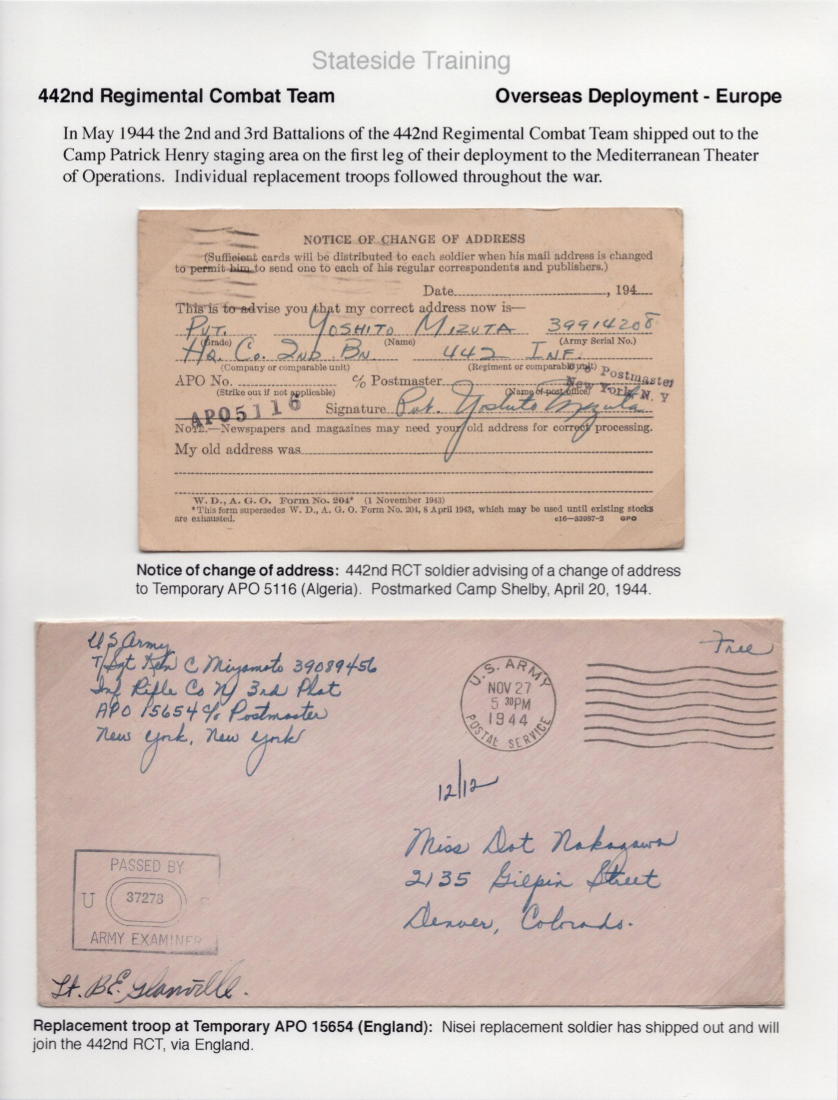 Stateside Training
442nd Regimental Combat Team Overseas Deployment - Europe
In May 1944 the 2nd and 3rd Battalions of the 442nd Regimental Combat Team shipped out to the
Camp Patrick Henry staging area on the first leg of their deployment to the Mediterranean Theater
of Operations. Individual replacement troops followed throughout the war.
NOTICE OF CHANGE OF ADDRESS
(Sufficient cards will be distributed to each soldier when his mail address is changed
to permit him to send one to each of his regular correspondents and publishers.)
Date, 194
This is to advise you that my correct address now is—
Pvt. Yoshito Mizuta 39914208
(Grade) (Name) (Army Serial No.)
Hq. Co. 2nd Bn 442 Inf.
(Company or comparable unit) (Regiment or comparable unit)
APO No. c/o Postmaster
c/o Postmaster
New York, N. Y
(Strike out if not applicable) (Name of post office)
APO 5116
Signature Pvt. Yoshito Mizuta
NOTE.—Newspapers and magazines may need your old address for correct processing.
My old address was
W. D., A. G. O. Form No. 204* (1 November 1943)
*This form supersedes W. D., A. G. O. Form No. 204, 8 April 1943, which may be used until existing stocks
are exhausted. c16—33987-2 GPO
Notice of change of address: 442nd RCT soldier advising of a change of address
to Temporary APO 5116 (Algeria). Postmarked Camp Shelby, April 20, 1944.
US Army
T/Sgt Ken C Miyamoto 39089456
Inf Rifle Co N 3rd Plat
APO 15654 c/o Postmaster
New York, New York
Free
U.S. ARMY
NOV 27
5 30PM
1944
POSTAL SERVICE
12/12
Miss Dot Nakagawa
2135 Gilpin Street
Denver, Colorado.
PASSED BY
U 37273 S
ARMY EXAMINER
Lt. B.E. Glanville.
Replacement troop at Temporary APO 15654 (England): Nisei replacement soldier has shipped out and will
join the 442nd RCT, via England.